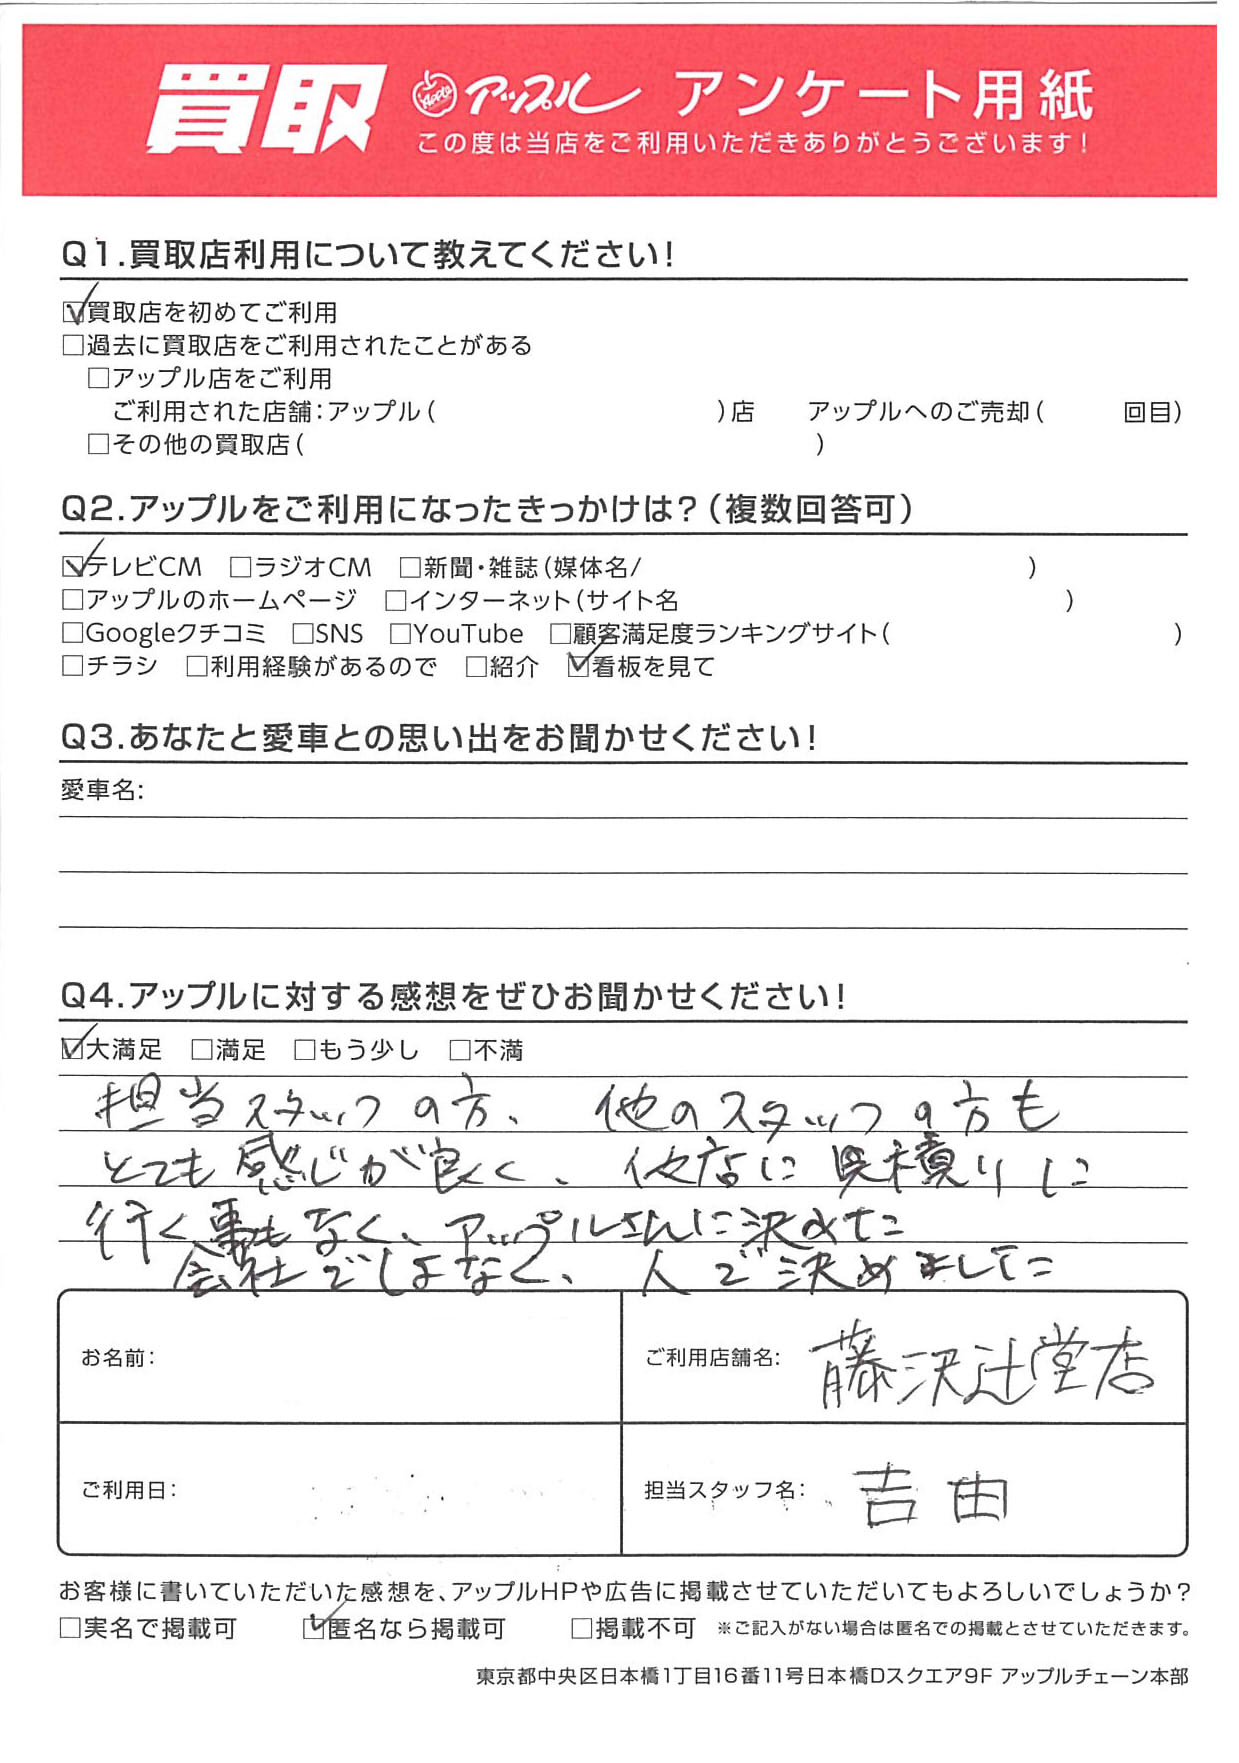 買取 Apple アップル アンケート用紙
この度は当店をご利用いただきありがとうございます!
Q1.買取店利用について教えてください!
☑買取店を初めてご利用
□過去に買取店をご利用されたことがある
□アップル店をご利用
ご利用された店舗:アップル( )店 アップルへのご売却( 回目)
□その他の買取店( )
Q2.アップルをご利用になったきっかけは?(複数回答可)
☑テレビCM □ラジオCM □新聞・雑誌(媒体名/ )
□アップルのホームページ □インターネット(サイト名 )
□Googleクチコミ □SNS □YouTube □顧客満足度ランキングサイト( )
□チラシ □利用経験があるので □紹介 ☑看板を見て
Q3.あなたと愛車との思い出をお聞かせください!
愛車名:
Q4.アップルに対する感想をぜひお聞かせください!
☑大満足 □満足 □もう少し □不満
担当スタッフの方、他のスタッフの方も
とても感じが良く、他店に見積りに
行く事もなく、アップルさんに決めた
会社でしはなく、人で決めました
お名前: ご利用店舗名: 藤沢辻堂店
ご利用日: 担当スタッフ名: 吉田
お客様に書いていただいた感想を、アップルHPや広告に掲載させていただいてもよろしいでしょうか?
□実名で掲載可 ☑匿名なら掲載可 □掲載不可 ※ご記入がない場合は匿名での掲載とさせていただきます。
東京都中央区日本橋1丁目16番11号日本橋Dスクエア9F アップルチェーン本部